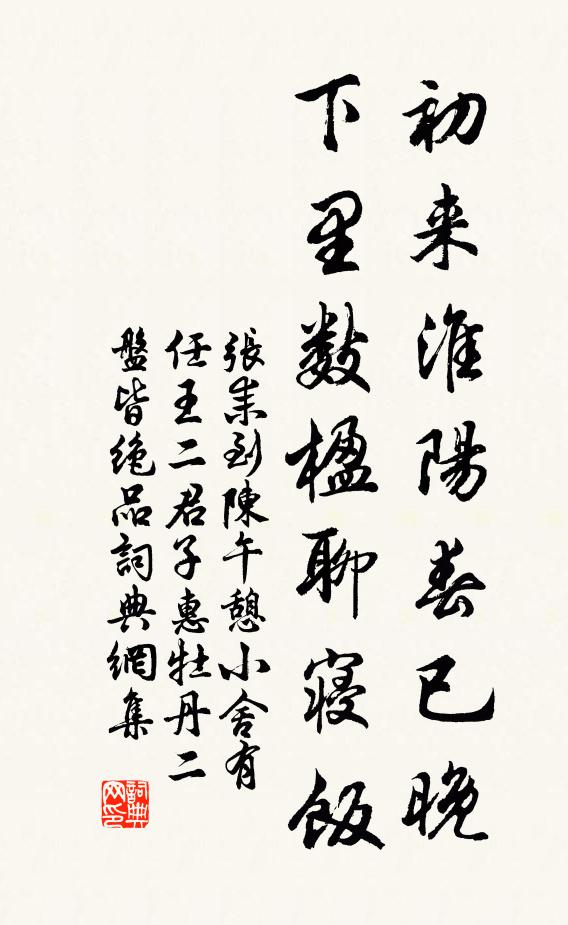 初来淮陽春已晚
下里數楹聊寝飯
張耒到陳午憩小舍有
任王二君子惠牡丹二
盤皆絶品詞典網集
詞典
网印